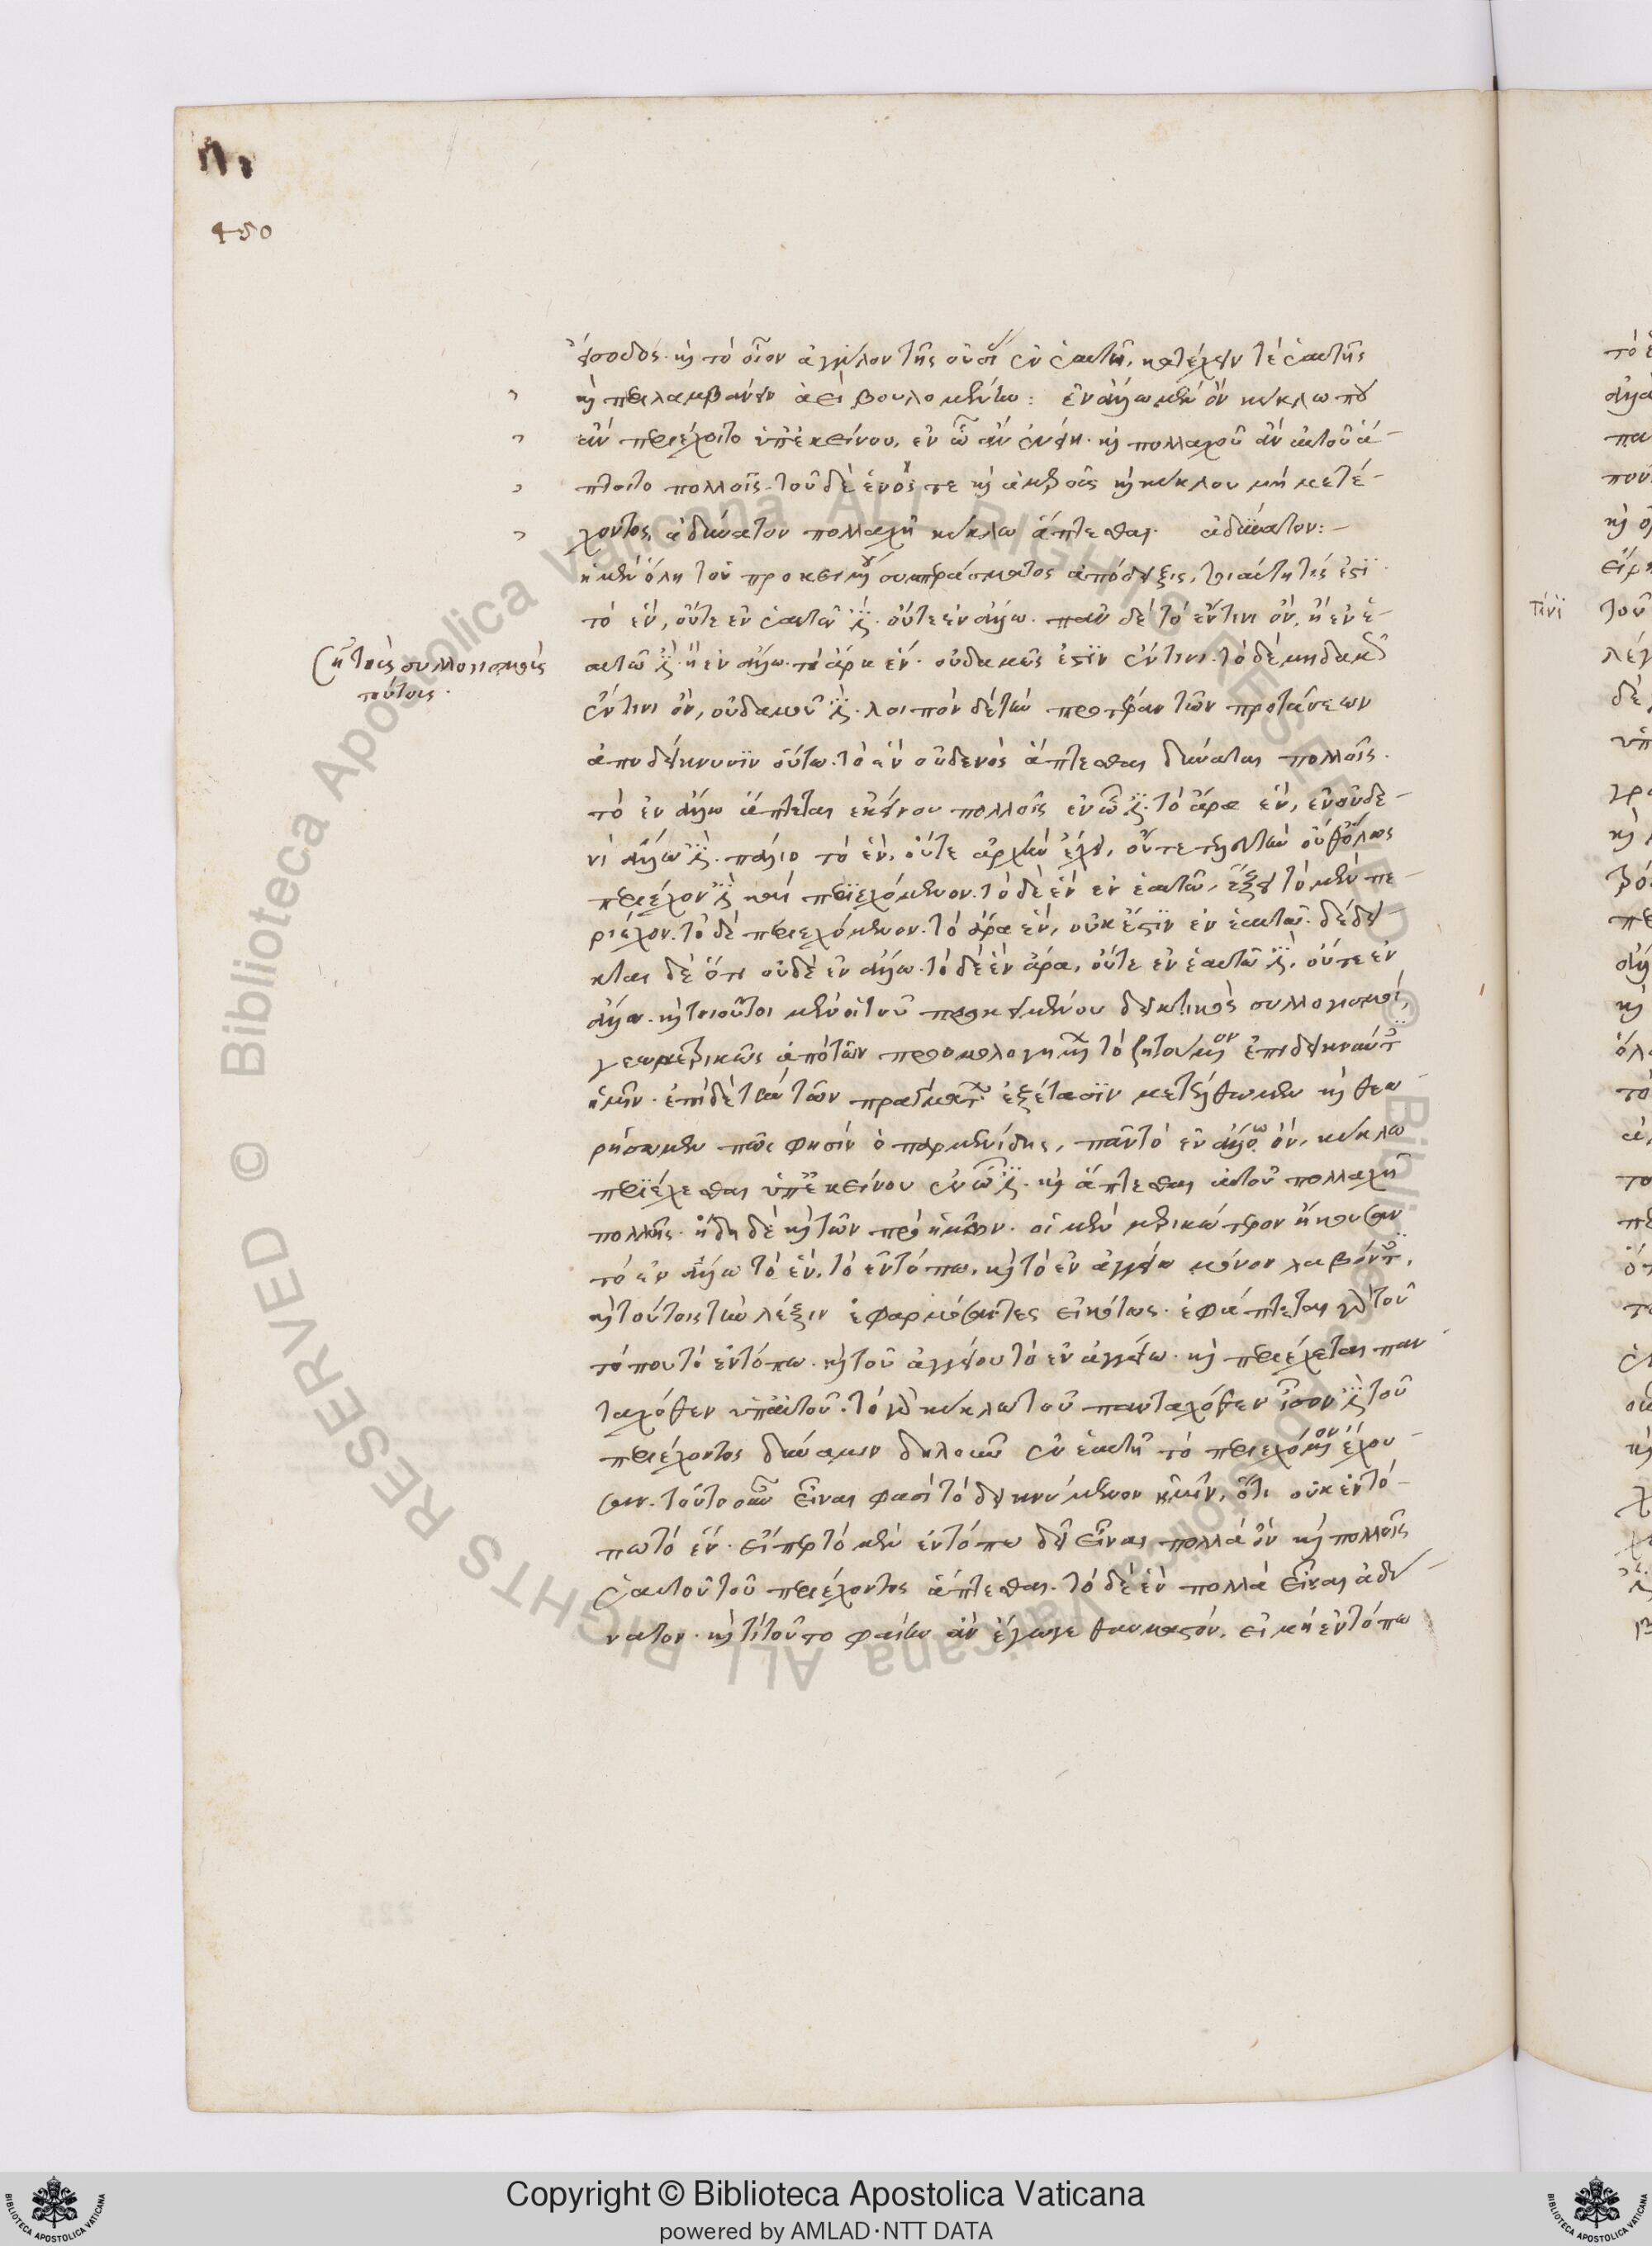 450
εἴσοδος. καὶ τὸ οἷον ἄγγελον τῆς οὐσίας ἐν ἑαυτῆ, κατέχειν τὲ ἑαυτῆς
καὶ περιλαμβάνειν ἀεὶ βουλομένην: ἐν ἄλλω μὲν ὂν κύκλω που
ἂν περιέχοιτο ὑπ' ἐκείνου, ἐν ὧ ἂν ἐνείη. καὶ πολλαχοῦ ἂν αὐτοῦ ἅ-
πτοιτο πολλοῖς. τοῦ δὲ ἑνός τε καὶ ἀμεροῦς καὶ κύκλου μὴ μετέ-
χοντος, ἀδύνατον πολλαχῆ κύκλω ἅπτεσθαι. ἀδύνατον:-
ἡ μὲν ὅλη τοῦ προκειμένου συμπεράσματος ἀπόδειξις, τοιαύτη τίς ἐστί.
τὸ ἓν, οὔτε ἐν ἑαυτῶ ἐστι. οὔτε ἐν ἄλλω. πᾶν δὲ τὸ ἔν τινι ὂν, ἢ ἐν ἑ-
αυτῶ ἐστι. ἢ ἐν ἄλλω. τὸ ἄρα ἓν. οὐδαμῶς ἐστὶν ἔν τινι. τὸ δὲ μηδαμοῦ
ἔν τινι ὂν, οὐδαμοῦ ἐστι. λοιπὸν δὲ τὴν προτέραν τῶν προτάσεων
ἀποδείκνυσιν οὕτω. τὸ ἓν οὐδενὸς ἅπτεσθαι δύναται πολλοῖς.
τὸ ἐν ἄλλω ἅπτεται ἐκείνου πολλοῖς ἐν ὧ ἐστι. τὸ ἄρα ἓν, ἐν οὐδε-
νὶ ἄλλω ἐστι. πάλιν τὸ ἓν, οὔτε ἀρχὴν ἔχει, οὔτε τελευτὴν οὐδ' ὅλως
περιέχον ἐστι καὶ περιεχόμενον. τὸ δὲ ἓν ἐν ἑαυτῶ, ἕξει τὸ μὲν πε-
ριέχον. τὸ δὲ περιεχόμενον. τὸ ἄρα ἓν, οὐκ ἔστιν ἐν ἑαυτῶ. δέδει-
κται δὲ ὅτι οὐδὲ ἐν ἄλλω. τὸ δὲ ἓν ἄρα, οὔτε ἐν ἑαυτῶ ἐστι, οὔτε ἐν
ἄλλω. καὶ τοιοῦτοι μὲν οἱ τοῦ προκειμένου δεικτικοὶ συλλογισμοί,
γεωμετρικῶς ἀπὸ τῶν προομολογημένων τὸ ζητούμενον ἐπιδεικνῦντες
ἡμῖν. ἐπὶ δὲ τὴν τῶν πραγμάτων ἐξέτασιν μετέλθωμεν καὶ θεω-
ρήσωμεν πῶς φησὶν ὁ παρμενίδης, πᾶν τὸ ἐν ἄλλω ὂν, κύκλω
περιέχεσθαι ὑπ' ἐκείνου ἐν ὧ ἐστι. καὶ ἅπτεσθαι αὐτοῦ πολλαχῆ
πολλοῖς. ἤδη δὲ καὶ τῶν πρὸ ἡμῶν. οἱ μὲν μερικώτερον ἤκουσαν
τὸ ἐν ἄλλω τὸ ἓν. τὸ ἐν τόπω, καὶ τὸ ἐν ἀγγείω μόνον λαβόντες,
καὶ τούτοις τὴν λέξιν ἐφαρμόσαντες εἰκότως. ἐφάπτεται γὰρ τοῦ
τόπου τὸ ἐν τόπω. καὶ τοῦ ἀγγείου τὸ ἐν ἀγγείω. καὶ περιέχεται παν-
ταχόθεν ὑπ' αὐτοῦ. τὸ γὰρ κύκλω τοῦ πανταχόθεν ἴσον ἐστι τοῦ
περιέχοντος δύναμιν δηλοῦν ἐν ἑαυτῆ τὸ περιεχόμενον ἔχου-
σαν. τοῦτο οὖν εἶναι φασὶ τὸ δεικνύμενον ἡμῖν, ὅτι οὐκ ἐν τό-
πω τὸ ἕν. εἴπερ τὸ μὲν ἐν τόπω δεῖ εἶναι πολλὰ ὂν καὶ πολλοῖς
ἑαυτοῦ τοῦ περιέχοντος ἅπτεσθαι. τὸ δὲ ἓν πολλὰ εἶναι ἀδύ-
νατον. καὶ τί τοῦτο φαίην ἂν ἔγωγε θαυμαστόν, εἰ μὴ ἐν τόπω
ζήτει τοὺς συλλογισμοὺς
τούτους.
Copyright © Biblioteca Apostolica Vaticana
powered by AMLAD·NTT DATA